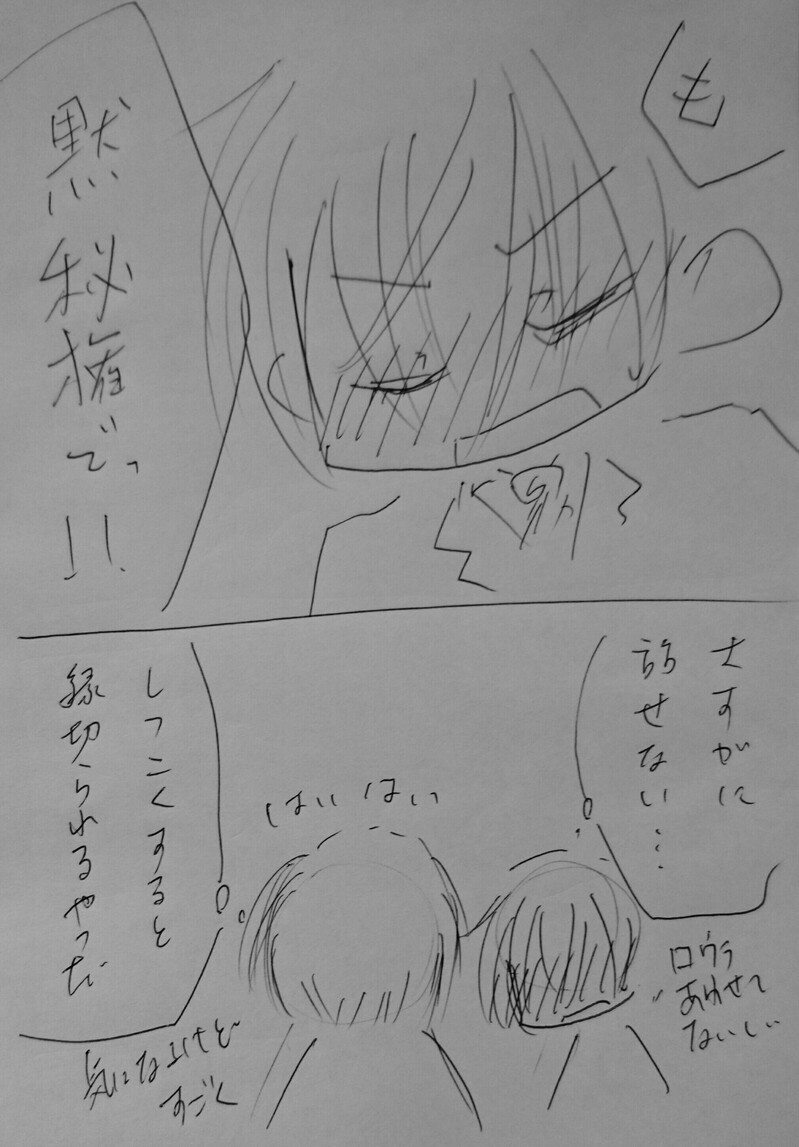 も
黙秘権でっ!!
さすがに
話せない…
口ウラ
あわせて
ないしい
はいはい
しつこくすると
縁切られるやつだ
気になるけど
すごく